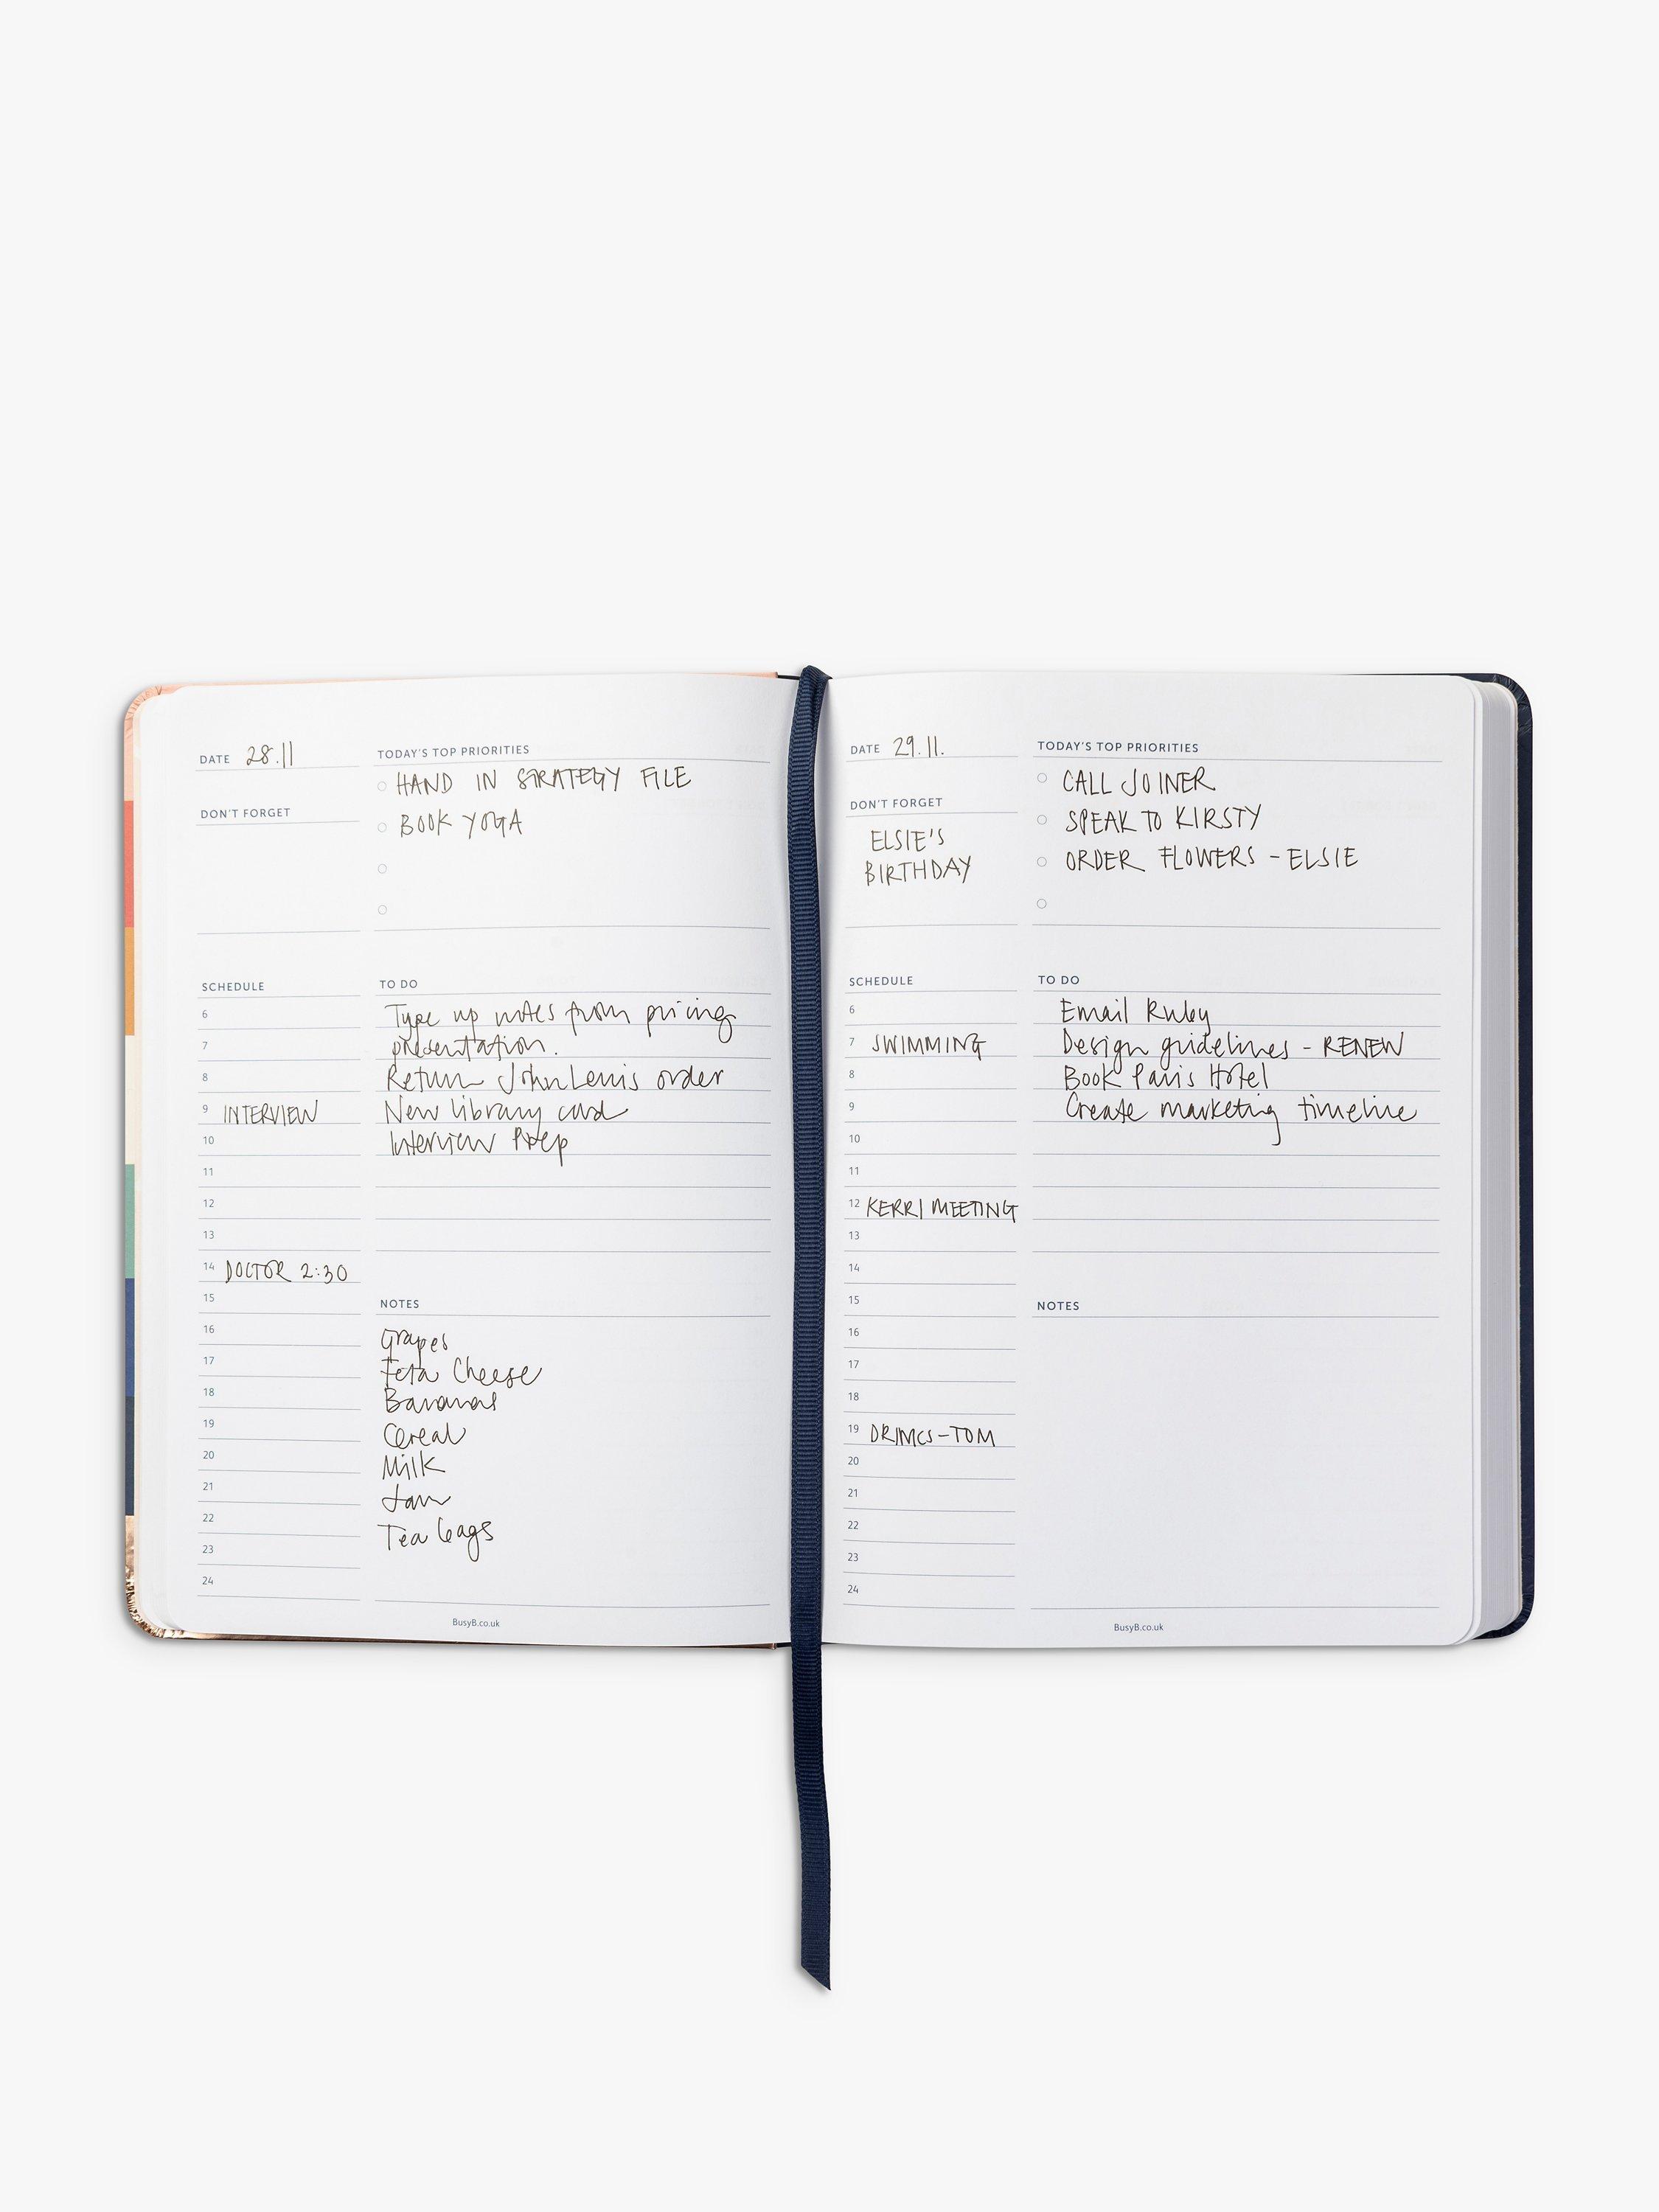 DATE 28.11
DON'T FORGET
TODAY'S TOP PRIORITIES
HAND IN STRATEGY FILE
BOOK YOGA
SCHEDULE
6
7
8
9 INTERVIEW
10
11
12
13
14 DOCTOR 2:30
15
16
17
18
19
20
21
22
23
24
TO DO
Type up notes from pricing
presentation.
Return John Lewis order
New library card
Interview Prep
NOTES
Grapes
Feta Cheese
Bananas
Cereal
Milk
Jam
Tea bags
BusyB.co.uk
DATE 29.11.
DON'T FORGET
ELSIE'S
BIRTHDAY
TODAY'S TOP PRIORITIES
CALL JOINER
SPEAK TO KIRSTY
ORDER FLOWERS - ELSIE
SCHEDULE
6
7 SWIMMING
8
9
10
11
12 KERRI MEETING
13
14
15
16
17
18
19 DRINKS - TOM
20
21
22
23
24
TO DO
Email Ruby
Design guidelines - RENEW
Book Paris Hotel
Create marketing timeline
NOTES
BusyB.co.uk